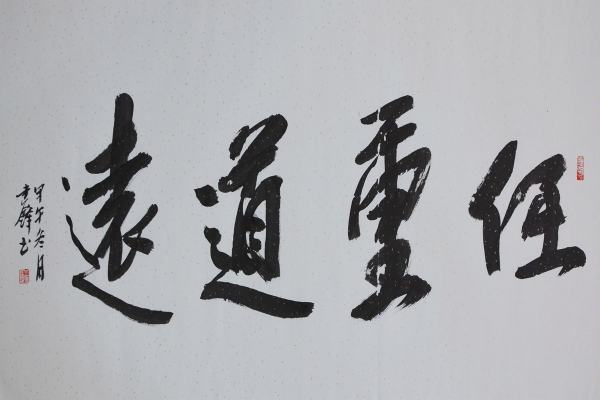 任重道遠
甲午冬月
書